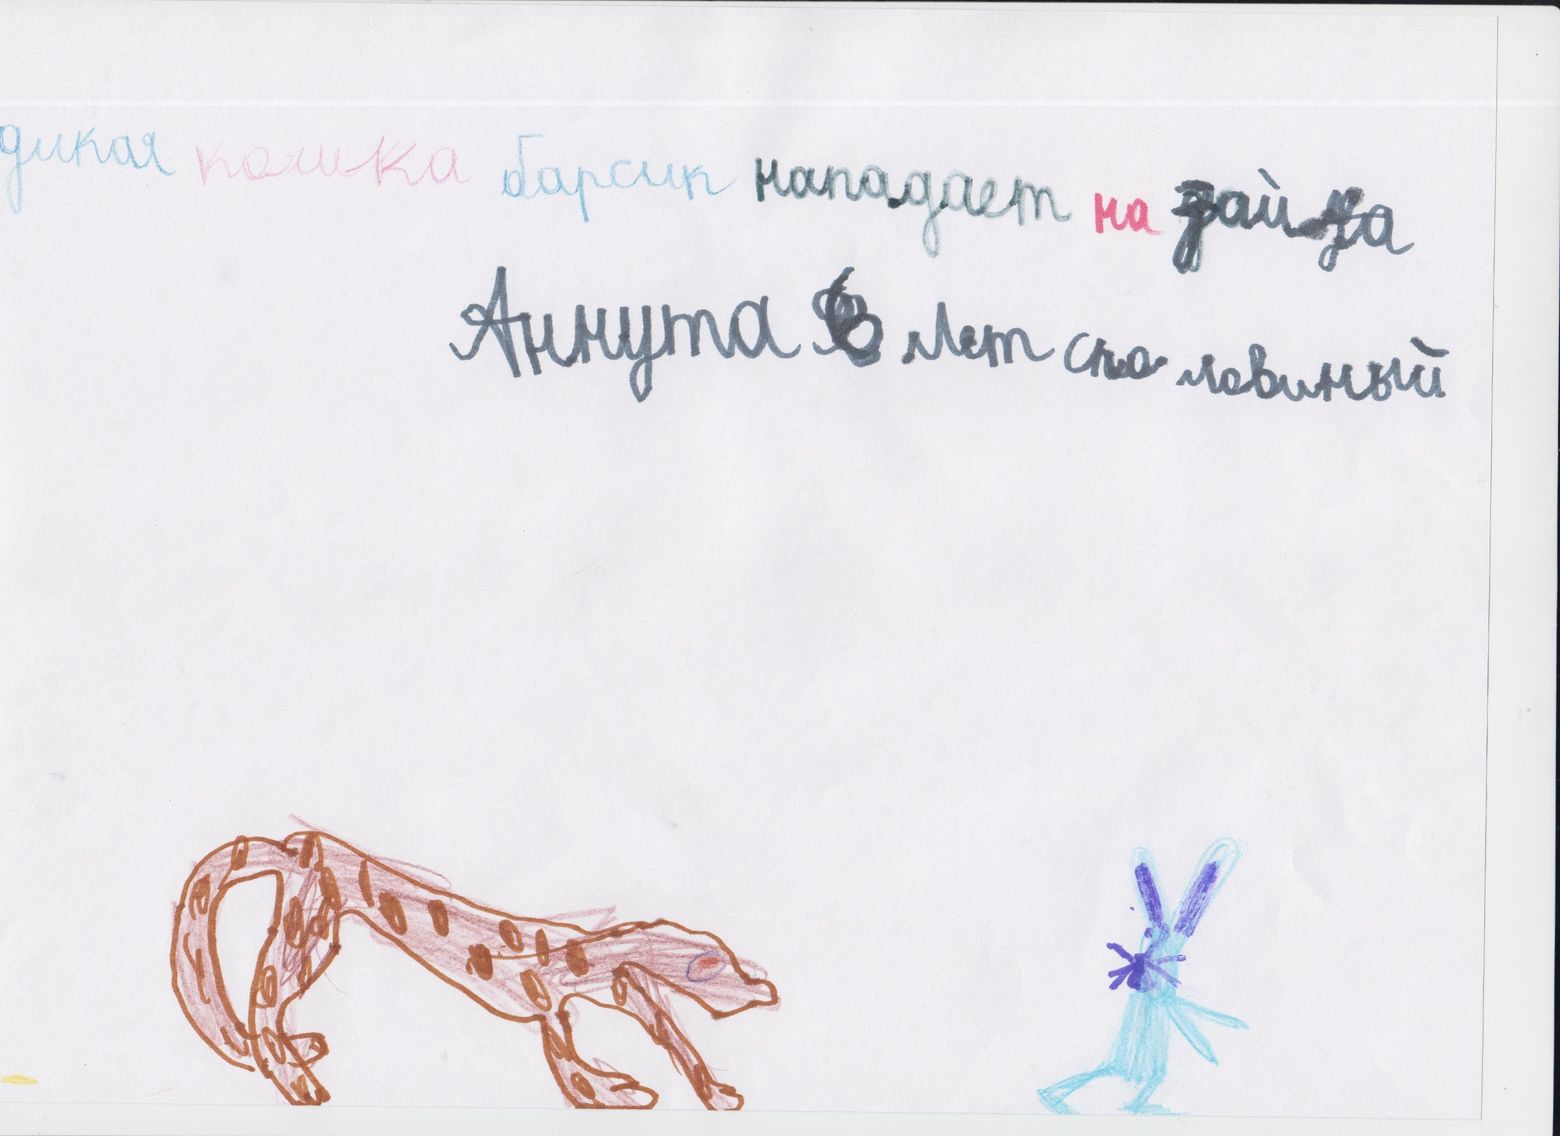 дикая кошка барсик нападает на зайца
Аннута 6 лет споловиный